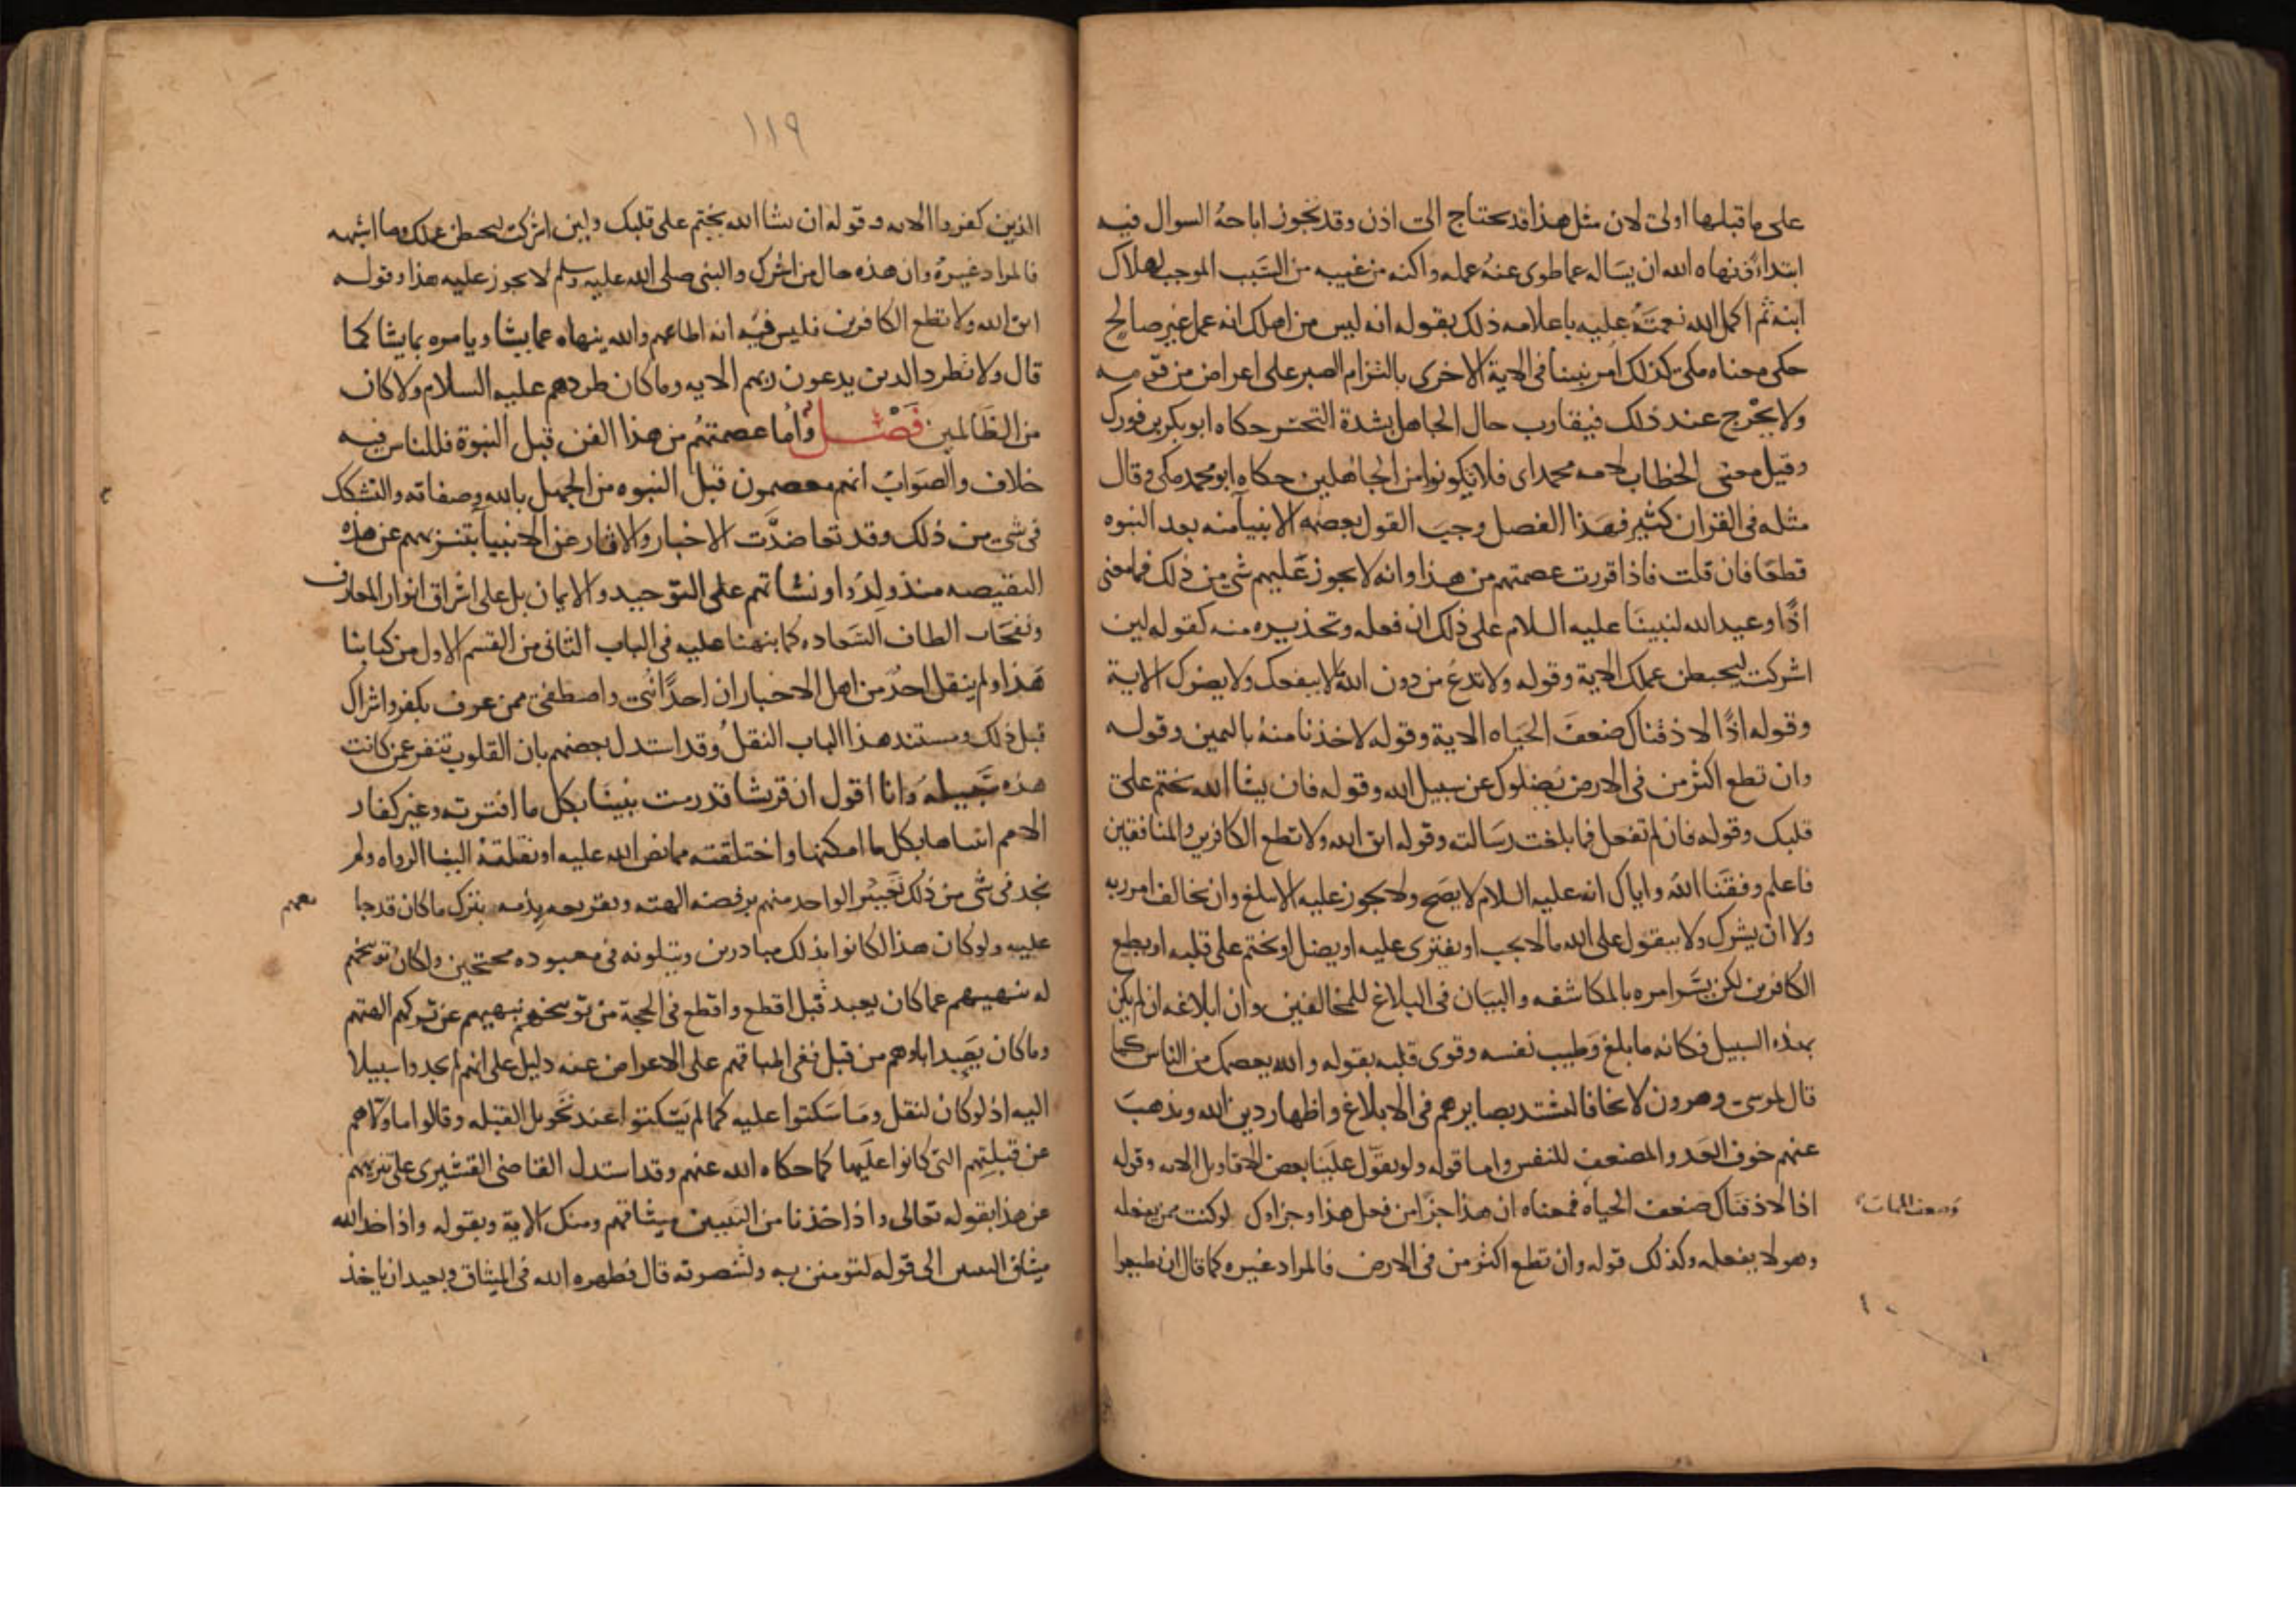 على ما قبلها اولى لان مثل هذا قد يحتاج الى اذن وقد تجوز اباحة السوال فيه
ابتداءً فنهاه الله ان يساله عما طوى عنه علمه واكنه من غيبه من السبب الموجب لهلاك
ابنه ثم اكمل الله نعمته عليه باعلامه ذلك بقوله انه ليس من اهلك انه عمل غير صالح
حكى معناه مكي كذلك امر نبينا في الاية الاخرى بالتزام الصبر على اعراض من قومه
ولا يخرج عند ذلك فيقارب حال الجاهل بشدة التحسر حكاه ابو بكر بن فورك
وقيل معنى الخطاب لامه محمد اي فلا تكونوا من الجاهلين حكاه ابو محمد مكي وقال
مثله في القران كثير فهذا الفصل وجب القول بعصمه الانبيا منه بعد النبوه
قطعا فان قلت فاذا قررت عصمتهم من هذا وانه لا يجوز عليهم شي من ذلك فما معنى
اذا وعيد الله لنبينا عليه السلام على ذلك ان فعله وتحذيره منه كقوله لين
اشركت ليحبطن عملك الاية وقوله ولا تدع من دون الله ما لا ينفعك ولا يضرك الاية
وقوله اذًا لاذقناك ضعف الحياه الاية وقوله لاخذنا منه باليمين وقوله
وان تطع اكثر من في الارض يضلوك عن سبيل الله وقوله فان يشا الله يختم على
قلبك وقوله فان لم تفعل فما بلغت رسالته وقوله اتق الله ولا تطع الكافرين والمنافقين
فاعلم وفقنا الله واياك انه عليه السلام لا يصح ولا يجوز عليه الا يبلغ وان يخالف امر ربه
ولا ان يشرك ولا يتقول على الله ما لا يجب او يفتري عليه او يضل او يختم على قلبه او يطيع
الكافرين لكن يسر امره بالمكاشفه والبيان في البلاغ للمخالفين وان ابلاغه ان لم يكن
بهذه السبيل فكانه ما بلغ وطيب نفسه وقوى قلبه بقوله والله يعصمك من الناس كما
قال لموسى وهرون لا تخافا لتشتد بصايرهم في الابلاغ واظهار دين الله ويذهب
عنهم خوف العدو المضعف للنفس واما قوله ولو تقول علينا بعض الاقاويل الايه وقوله
اذا لاذقناك ضعف الحياه فمعناه ان هذا جزا من فعل هذا وجزاوك لو كنت ممن يفعله
وضعف الممات
وهو لا يفعله وكذلك قوله وان تطع اكثر من في الارض فالمراد غيره كما قال ان تطيعوا
١١٩
الذين كفروا الايه وقوله ان يشا الله يختم على قلبك ولين اشركت ليحبطن عملك وما اشبهه
فالمراد غيره وان هذه حال من اشرك والنبي صلى الله عليه وسلم لا يجوز عليه هذا وقوله
اتق الله ولا تطع الكافرين فليس فيه انه اطاعهم والله ينهاه عما يشا ويامره بما يشا كما
قال ولا تطرد الذين يدعون ربهم الايه وما كان طردهم عليه السلام ولا كان
من الظالمين فصل واما عصمتهم من هذا الفن قبل النبوة فللناس فيه
خلاف والصواب انهم معصومون قبل النبوه من الجهل بالله وصفاته والتشكك
في شي من ذلك وقد تعاضدت الاخبار والاثار عن الانبيا بتنزيههم عن هذه
النقيصه منذ ولدوا ونشاتهم على التوحيد والايمان بل على اشراق انوار المعارف
ونفحات الطاف السعاده كما نبهنا عليه في الباب الثاني من القسم الاول من كتابنا
هذا ولم ينقل احد من اهل الاخبار ان احدًا نبي واصطفى ممن عرف بكفر واشراك
قبل ذلك ومستند هذا الباب النقل وقد استدل بعضهم بان القلوب تنفر عمن كانت
هذه سبيله وانا اقول ان قريشا قد رمت نبينا بكل ما افترته وعير كفار
الامم انبياها بكل ما امكنها واختلقته مما نص الله عليه او نقلته الينا الرواه ولم
نجد في شي من ذلك تعييرا لواحد منهم برفضه الهته وتقريعه بذمه بترك ما كان قد جا
معهم
عليه ولو كان هذا لكانوا بذلك مبادرين وبتلونه في معبوده محتجين ولكان توبيخهم
له بنهيهم عما كان يعبد قبل اقطع واقطع في الحجة من توبيخه بنهيهم عن تركهم الهتهم
وما كان يعبد اباوهم من قبل ففي اطباقهم على الاعراض عنه دليل على انهم لم يجدوا سبيلا
اليه اذ لو كان لنقل وما سكتوا عليه كما لم يسكتوا عند تحويل القبله وقالوا ما ولاهم
عن قبلتهم التي كانوا عليها كما حكاه الله عنهم وقد استدل القاضي القشيري على تنزيههم
عن هذا بقوله تعالى واذ اخذنا من النبيين ميثاقهم ومنك الاية وبقوله واذ اخذ الله
ميثاق النبيين الى قوله لتومنن به ولتنصرنه قال فطهره الله في الميثاق وبعيد ان ياخذ